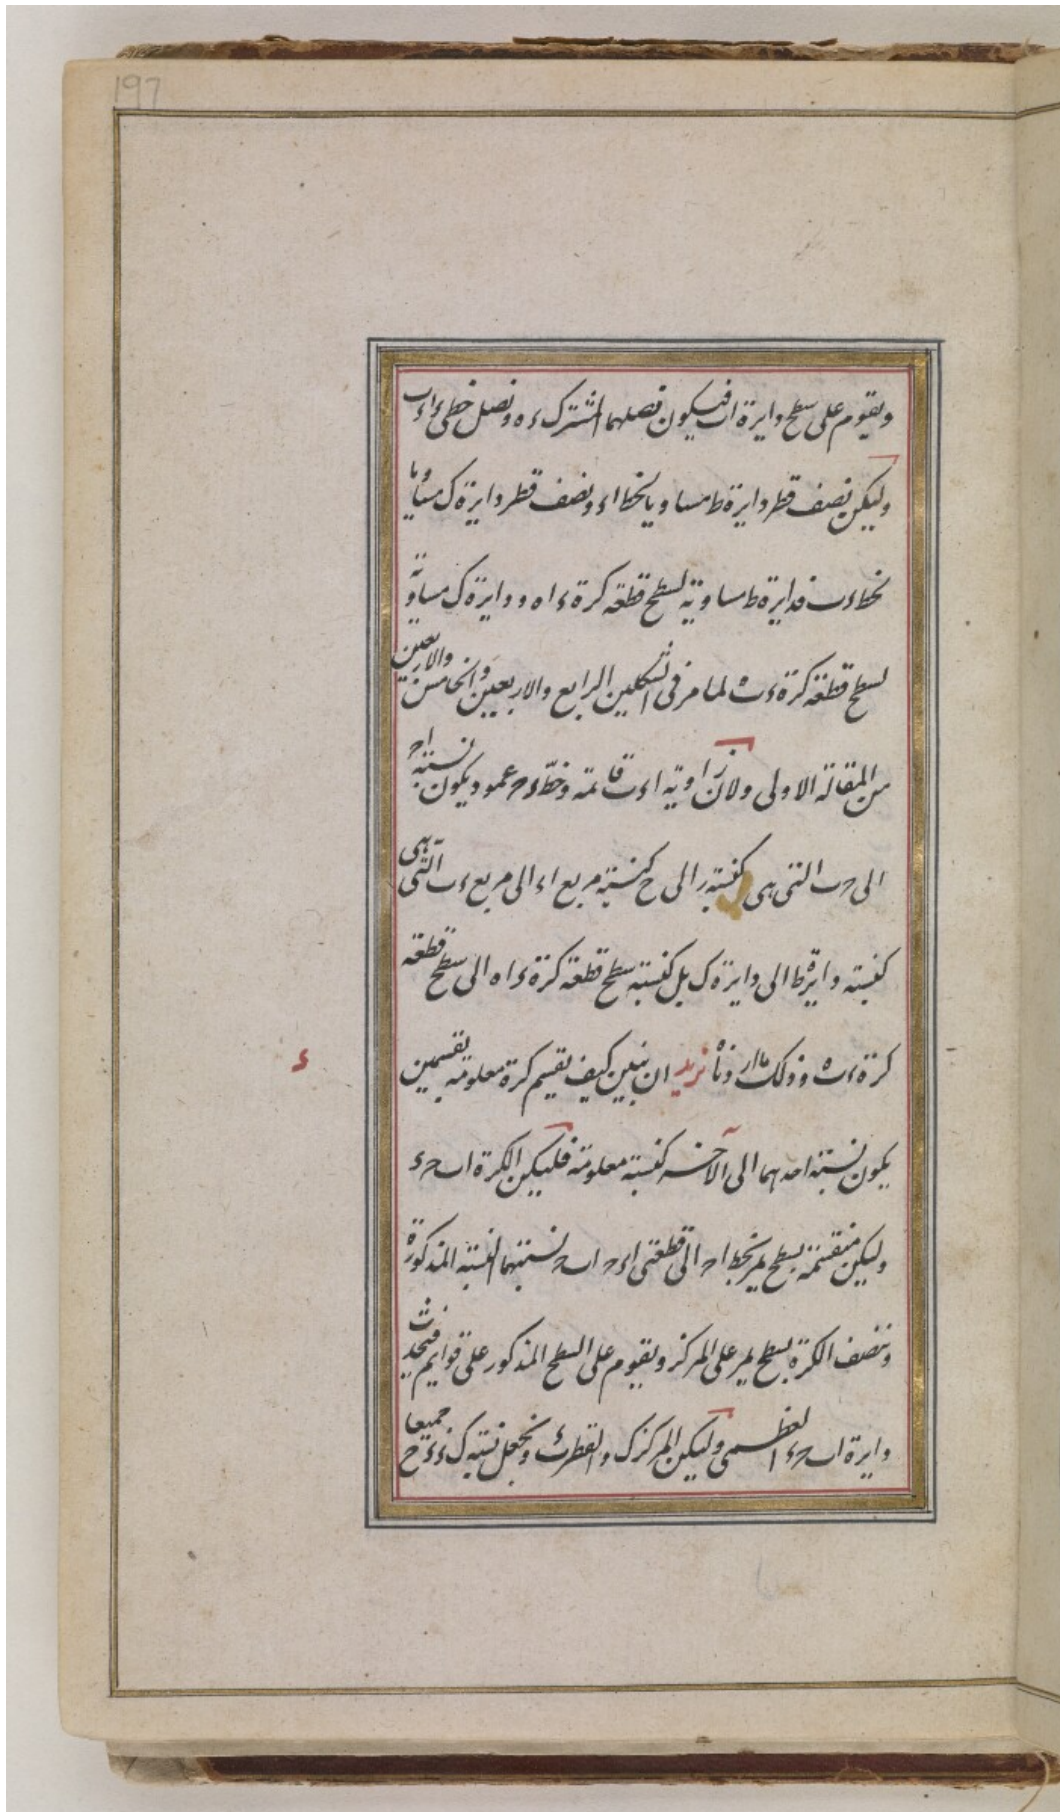 197
ويقوم على سطح دايرة اب فيكون فصلهما المشترك ءه ونصل خطى ءا ءب
وليكن نصف قطر دايرة ط مساويا لخط اء ونصف قطر دايرة ك مساويا
لخط ءب فدايرة ط مساوية لسطح قطعة كرة ءاه ودايرة ك مساوية
لسطح قطعة كرة ءبه لما مر فى الشكلين الرابع والاربعين والخامس والاربعين
من المقالة الاولى ولان زاوية اءب قائمة وخط ءح عمود يكون نسبة اح
الى حب التى هى كنسبة ر الى ح كنسبة مربع اء الى مربع ءب التى هى
كنسبة دايرة ط الى دايرة ك بل كنسبة سطح قطعة كرة ءاه الى سطح قطعة
كرة ءبه وذلك ما اردناه نريد ان نبين كيف نقسم كرة معلومة بقسمين
ء
يكون نسبة احدهما الى الآخر كنسبة معلومة فليكن الكرة ابحء
وليكن منقسمة بسطح يمر بخط اح الى قطعتى اءح ابح نسبتهما النسبة المذكورة
وننصف الكرة بسطح يمر على المركز ويقوم على السطح المذكور على قوايم فيحدث
دايرة ابحء العظمى وليكن المركز ك والقطر بء ونجعل نسبة ك ء ءح جميعا